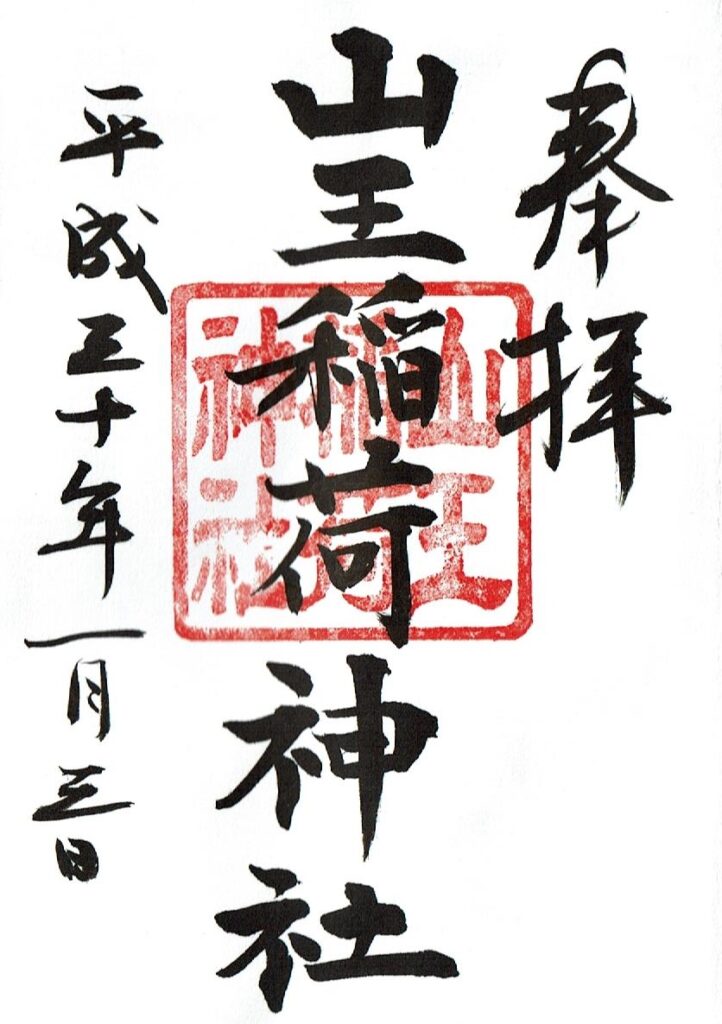 奉拝
山王稲荷神社
山王稲荷神社
平成三十年一月三日